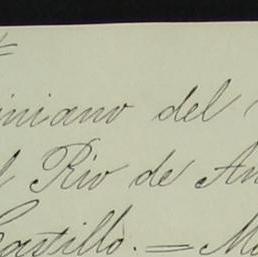 iniano del
l Rio de An
Castillo. = M